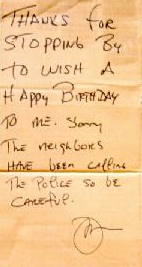 THANKS for
STOPPING By
TO WISH A
HAppy BIRTHDAY
TO ME. Sorry
The neighbors
HAVE been calling
The Police so be
CAREFUL.